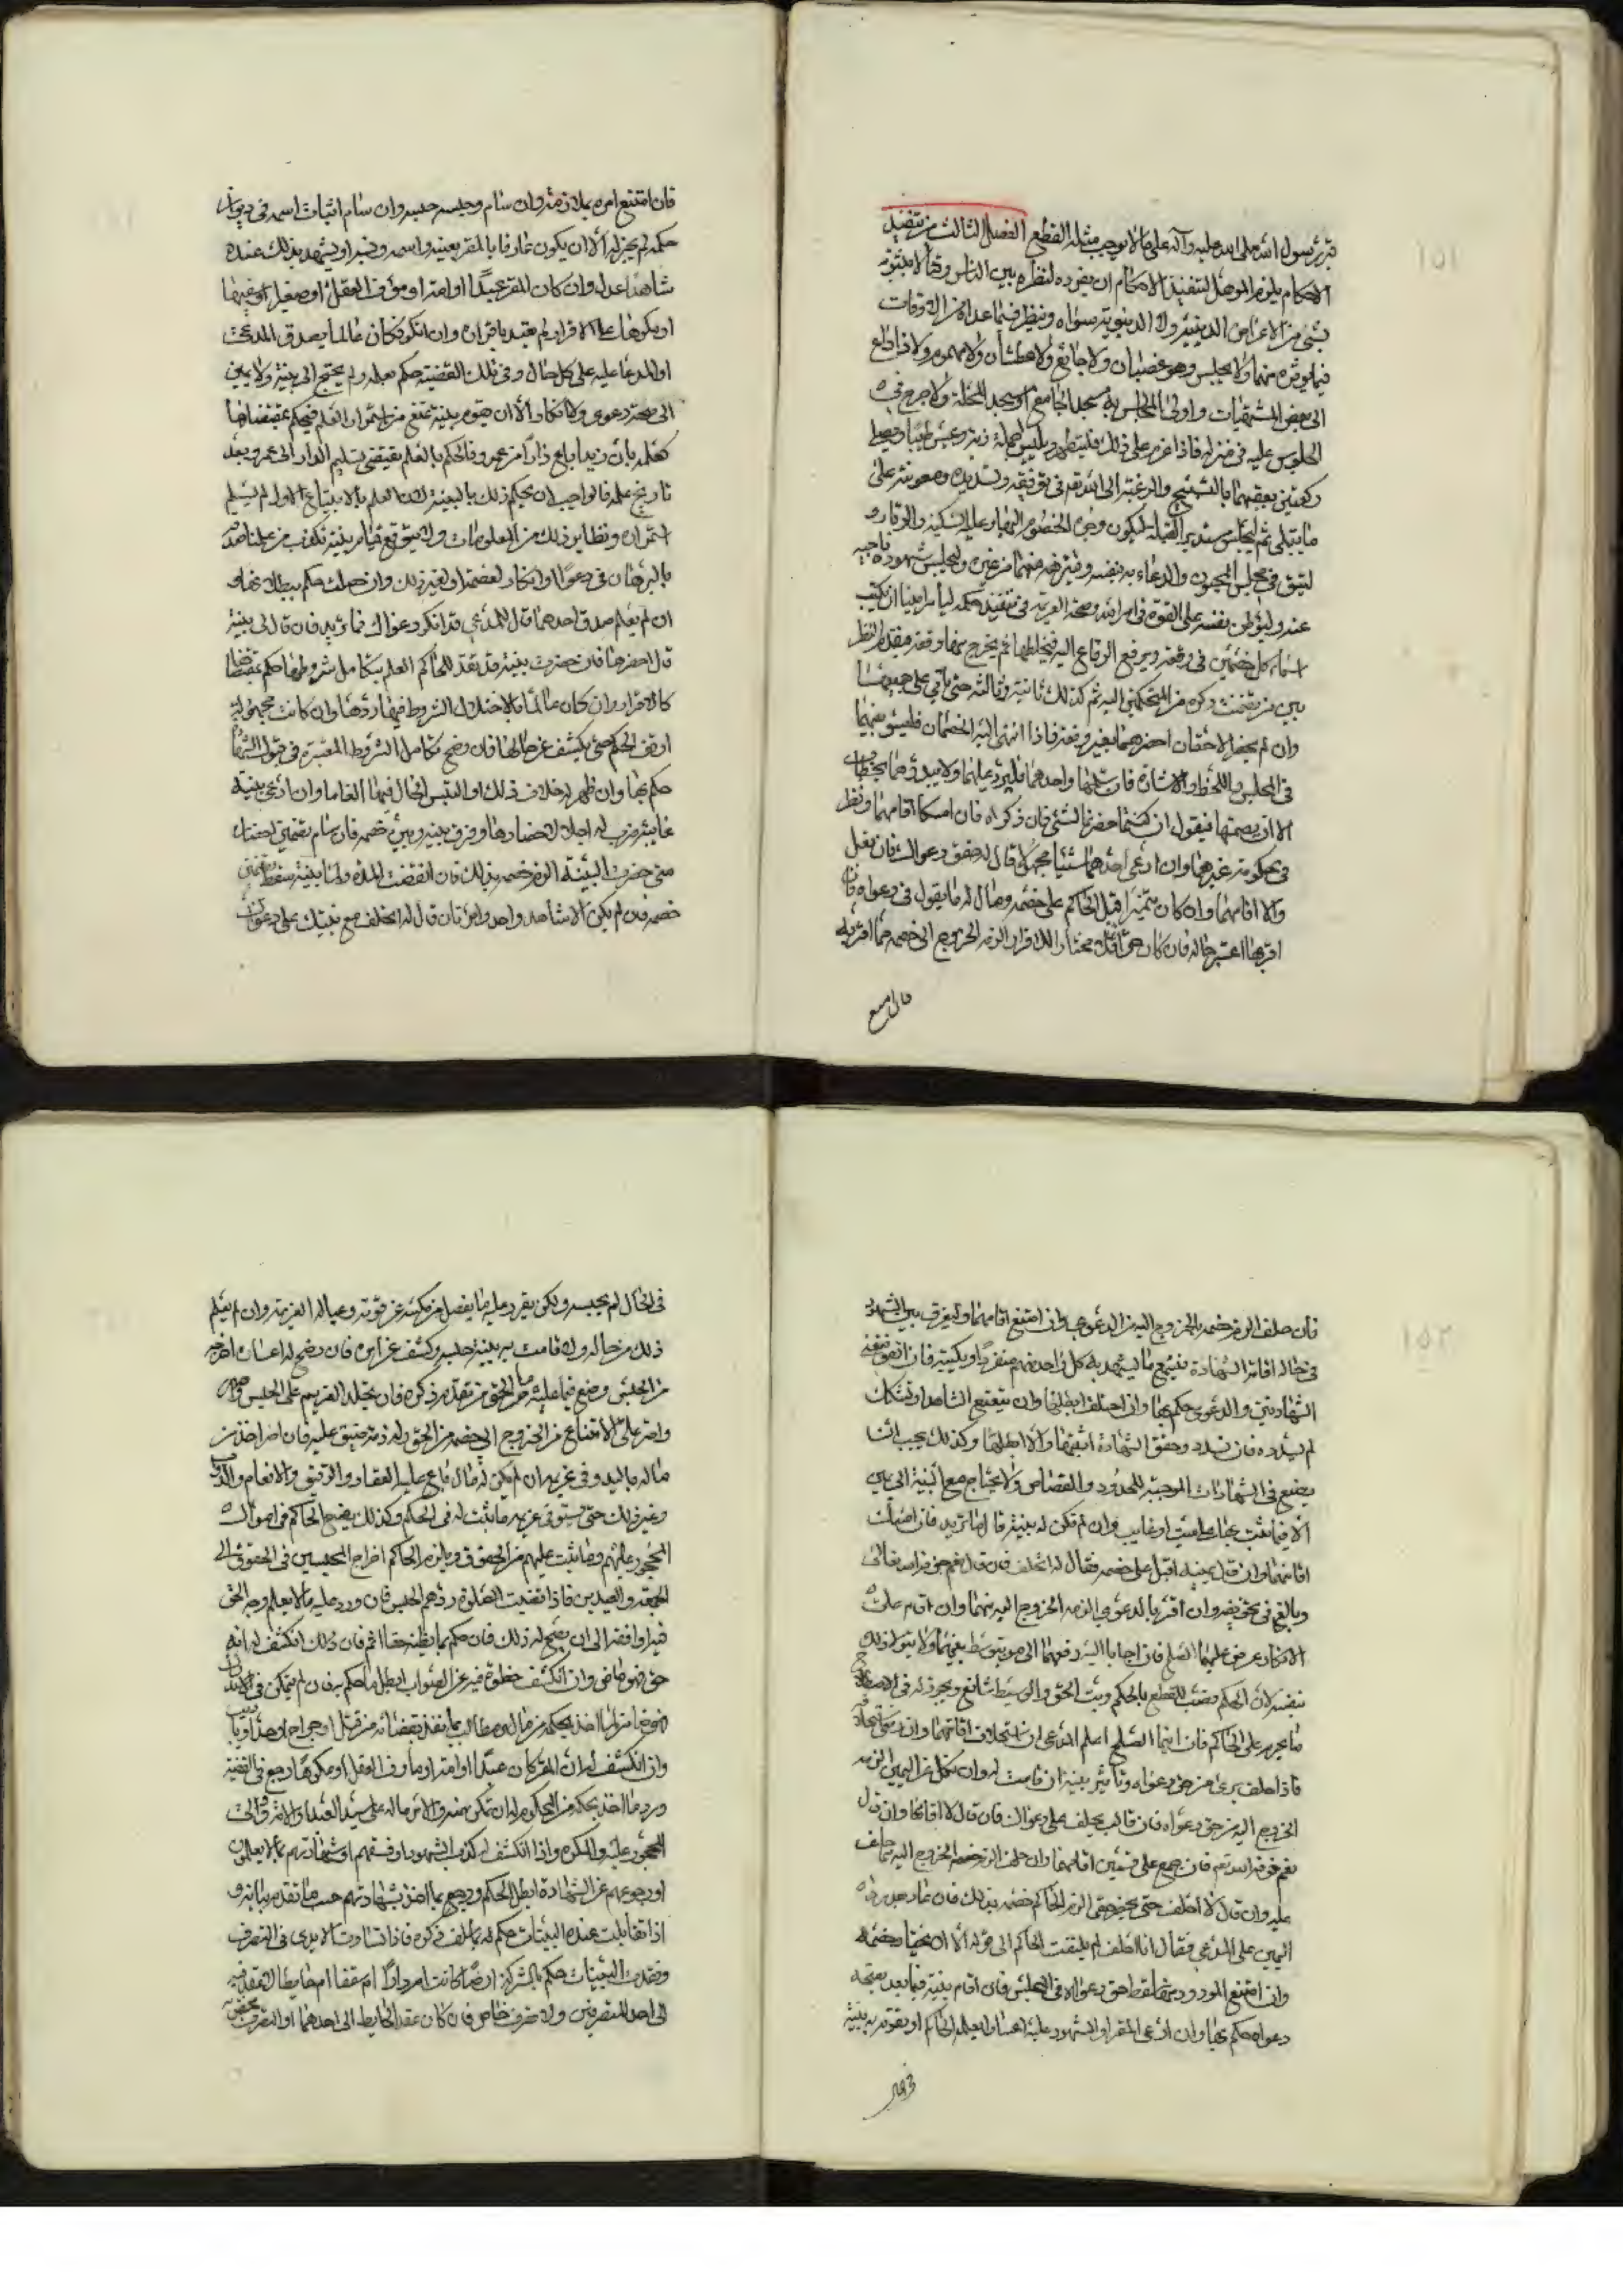 قبر رسول الله صلى الله عليه وآله على ما لا يوجب مثله القطع الفصل الثالث من تنفيذ
الاحكام يلزم الموهل لتنفيذ الاحكام ان يفرده لنظره بين الناس وقتا لا يشوبه
بشئ من الاغراض الدينية ولا الدنيوية سواه وينظر فيما عداه من الاوقات
فيما يؤثره منهما ولا يجلس وهو غضبان ولا جائع ولا عطشان ولا مهموم ولا
الى بعض المشتهيات واولى المجالس به مسجد الجامع او مسجد المحلة ولا حرج في
الجلوس عليه في منزله فاذا عزم على ذلك فليتطهر ويلبس اجمل زينته ويصلي
ركعتين يعقبهما بالتسبيح والرغبة الى الله تعالى في توفيقه وتسديده ومعونته على
ما ابتلى ثم ليجلس مستدبر القبلة ليكون وجوه الخصوم اليها وعليه السكينة والوقار و
في مجلس والدعاء به بنفسه منهما من غيره وليجلس شهوده ناحية
عنه وليوطن نفسه على القوة في امر الله وصحة العزيمة في تنفيذ حكمه ليامر امينا ان يكتب
اسماء كل خصمين في رقعة ويرفع الرقاع اليه فيخلطها ثم يخرج منها رقعة فيقدم النظر
بين من تضمنت ذكره من المتحكمين اليه ثم كذلك ثانية وثالثة حتى ياتي على جميعها
وان لم يحفل احضرهما بغير رقعة فاذا انتهى اليه الخصمان فليسو بينهما
في المجلس واللحظ والاشارة فان سلما او احدهما فليرد عليهما ولا يبدؤهما بخطاب
الا ان يصمتا فيقول ان كنتما حضرتما لشئ فاذكراه فان امسكا اقامهما ونظر
في حكومة غيرهما وان ادعى احدهما شيئا مجهولا قال له حقق دعواك فان فعل
والا اقامهما وان كان متميزا اقبل الحاكم على خصمه وقال له ما تقول في دعواه فان
اقر بها اعتبر حاله فان كان حرا عاقلا مختارا للاقرار الزمه الخروج الى خصمه مما اقر به
فان امتنع
فان امتنع امره بملازمته وان سام حبسه حبسه وان سام اثبات اسمه في ديوان
حكمه لم يجز له الا ان يكون عارفا بالمقر بعينه واسمه ونسبه او يشهد بذلك عنده
شاهدا عدل وان كان المقر عبدا او امة او مؤف العقل او صغيرا او سفيها
او مكرها على الاقرار لم يعتد باقراره وان انكر وكان عالما بصدق المدعي
او المدعا عليه على كل حال وفي تلك القضية حكم بعلمه ولم يحتج الى بينة ولا يمين
الى صحة دعوى ولا انكار الا ان تقوم بينة تمنع من استمرار العلم فيحكم بمقتضاها
كعلمه بان زيدا باع دارا من عمرو فالحكم بالعلم يقتضي تسليم الدار الى عمرو وبعد
تاريخ علمه فالواجب ان يحكم ذلك بالبينة لان العلم بالابتياع الاول لم يسلم
استمراره ونظاير ذلك من المعلومات ولا يتوقع قيام بينة تكذب من علمنا صدقه
بالبرهان في دعوى او انكار لعصمته او لغير ذلك وان حصلت حكم ببطلانها و
ان لم يعلم صدق احدهما قال للمدعي قد انكر دعواك فما تريد فان قال لي بينة
قال احضرها فان حضرت بينة قد تقدم للحاكم العلم بتكامل شروطها حكم بمقتضاها
كالاقرار وان كان عالما باختلال الشروط فيها ردها وان كانت مجهولة
اوقف الحكم حتى يكشف عن حالها فان وضح تكامل الشروط المعتبرة في قبول الشهادة
حكم بها وان ظهر له خلاف ذلك او التبس الحال فيها الغاها وان ادعى بينة
غايبة ضرب له اجلا لاحضارها وفرق بينه وبين خصمه فان سام تضمين احضاره
متى حضرت البينة الزم خصمه بذلك فان انقضت المدة ولما ببينة سقط ضمان
خصمه فان لم يكن الا شاهد واحد وامرأتان قال له اتحلف مع بينتك على دعواك
فان حلف الزم خصمه بالخروج اليه من الدعوى وان امتنع اقامهما وليفرق بين الشهود
في حال اقامة الشهادة فيسمع ما يشهد به كل واحد منهم منفردا ويكتبه فان اتفق
الشهادتين والدعوى حكم بها وان اختلفت ابطلها وان تتعتع الشاهد او تشكك
لم يسدده فان تسدد وحقق الشهادة اثبتها والا ابطلها وكذلك يجب ان
يصنع في الشهادات الموجبة للحدود والقصاص ولا يحتاج مع البينة الى يمين
الا فيما تثبت بها على ميت او غايب وان لم تكن له بينة قال له ما تريد فان امسك
اقامهما وان قال يمينه اقبل على خصمه فقال له اتحلف فان قال نعم خوفه الله تعالى
وبالغ في تخويفه وان اقر بالدعوى الزمه الخروج اليه منها وان اقام على
الانكار عرض عليهما الصلح فان اجابا اليه رفعهما الى من يتوسط بينهما ولا يتولا ذلك
بنفسه لان الحاكم نصب للقطع بالحكم وبت الحق والوسيط شافع ويجوز له في الاصلاح
ما يحرم على الحاكم فان ابيا الصلح اعلم المدعي ان استحلاف
فاذا حلف برئ من حق دعواه وتاثير بينة ان قامت له وان نكل عن اليمين الزمه
الخروج اليه من حق دعواه فان قال يحلف على دعواك فان قال لا اقامهما وان قال
نعم خوفه الله تعم فان رجع على يمين اقامهما وان حلف الزم خصمه الخروج اليه مما حلف
عليه وان قال لا احلف حتى يحضر حقي الزم الحاكم خصمه بذلك فان عاد بعد رد
اليمين على المدعي فقال انا احلف لم يلتفت الحاكم الى قوله الا ان يختار خصمه
وان امتنع المردود عليه سقط حق دعواه في المجلس فان اقام بينة فيما بعد بصحة
دعواه حكم بها وان ادعى المقر او المشهود عليه اعسارا يعلمه الحاكم او تقوم به بينة
في الحال
في الحال لم يحبسه ولكن يقرر عليه ما يفضل من مكسبه عن قوته وعياله لغريمه وان لم يعلم
ذلك من حاله ولا قامت به بينة حبسه وكشف عن امره فان وضح له اعساره اخرجه
من الحبس وصنع فيما عليه من الحق من تقدم ذكره فان يختلد الغريم على الحبس
واصر على الامتناع من الخروج الى خصمه من الحق وله ذمة ضيق عليه فان اصر اخذ من
ماله باليد وفي غريمه ان لم يكن له مال باع عليه العقار والرقيق والانعام والدواب
وغير ذلك حتى يستوفي غريمه ما ثبت له في الحكم وكذلك يصنع الحاكم في اموال
المحجور عليهم وما يثبت عليهم من الحقوق ويلزم الحاكم اخراج المحبسين في الحقوق الى
الجمعة والعيدين فاذا قضيت الصلوة ردهم الحبس فان ورد عليه ما لا يعلم وجه الحق
فيه اوقفه الى ان يصح له ذلك فان حكم بما يظنه حقا اثم فان انكشف له انه
حق فهو ماض وان انكشف خطؤه فيه عن الصواب ابطل ما حكم به فان لم يتمكن
ضامن لما اخذ بحكمه من مال ومطالب بما نفذ بقضائه من قتل او جراح او حد او تاديب
وان انكشف له ان المقر كان عبدا او امة او ماوف العقل او مكرها رجع في القضية
ورد ما اخذ بحكمه من المحكوم له ان تمكن منه والا من ماله على سيد العبد او الامة
المحجور عليه والمكره واذا انكشف له كذب الشهود او فسقهم او شهادتهم بما لا يعلمون
او رجوعهم عن الشهادة ابطل الحكم ورجع بما اخذ بشهادتهم حسب ما تقدم بيانه و
اذا تقابلت عنده البينات حكم فيه بما سلف ذكره فاذا تساوت الايدي في التصرف
وفقدت البينات حكم بالشركة ارضا كانت ام دارا ام سقفا ام حايطا
الى احد المتصرفين ولا تصرف خاص فان كان عقد الحايط الى احدهما او التصرف